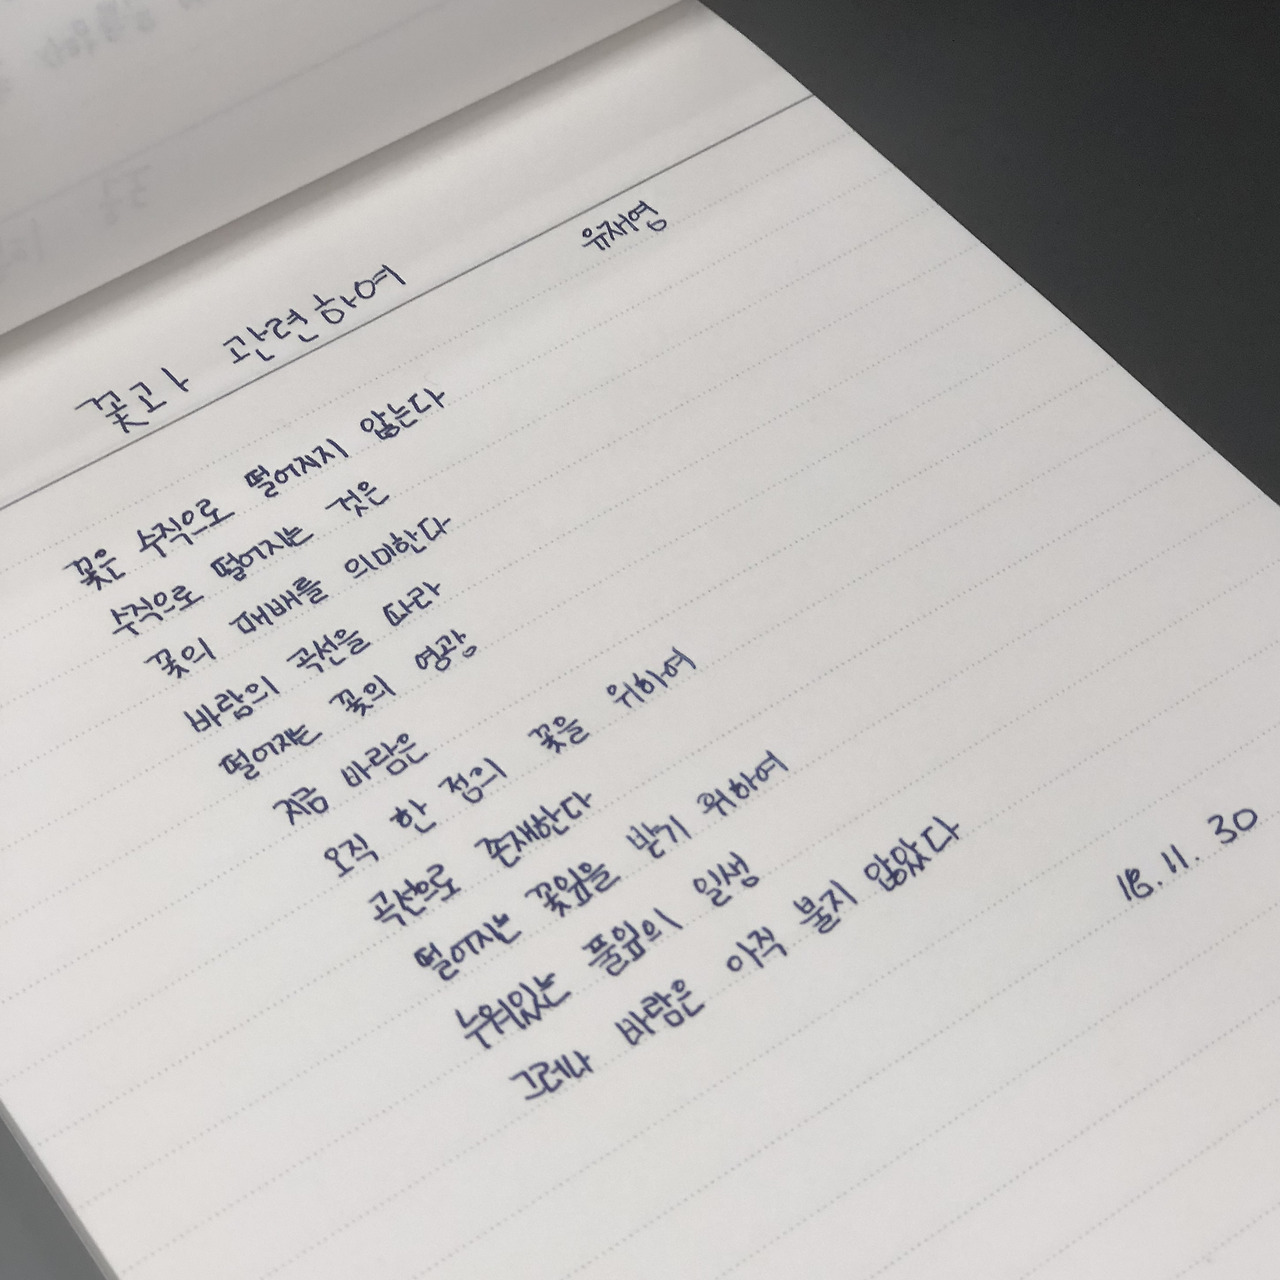 꽃과 관련하여
유재영
꽃은 수직으로 떨어지지 않는다
수직으로 떨어지는 것은
꽃의 패배를 의미한다
바람의 곡선을 따라
떨어지는 꽃의 영광
지금 바람은
오직 한 점의 꽃을 위하여
곡선으로 존재한다
떨어지는 꽃잎을 받기 위하여
누워있는 풀잎의 일생
그러나 바람은 아직 불지 않았다
18. 11. 30